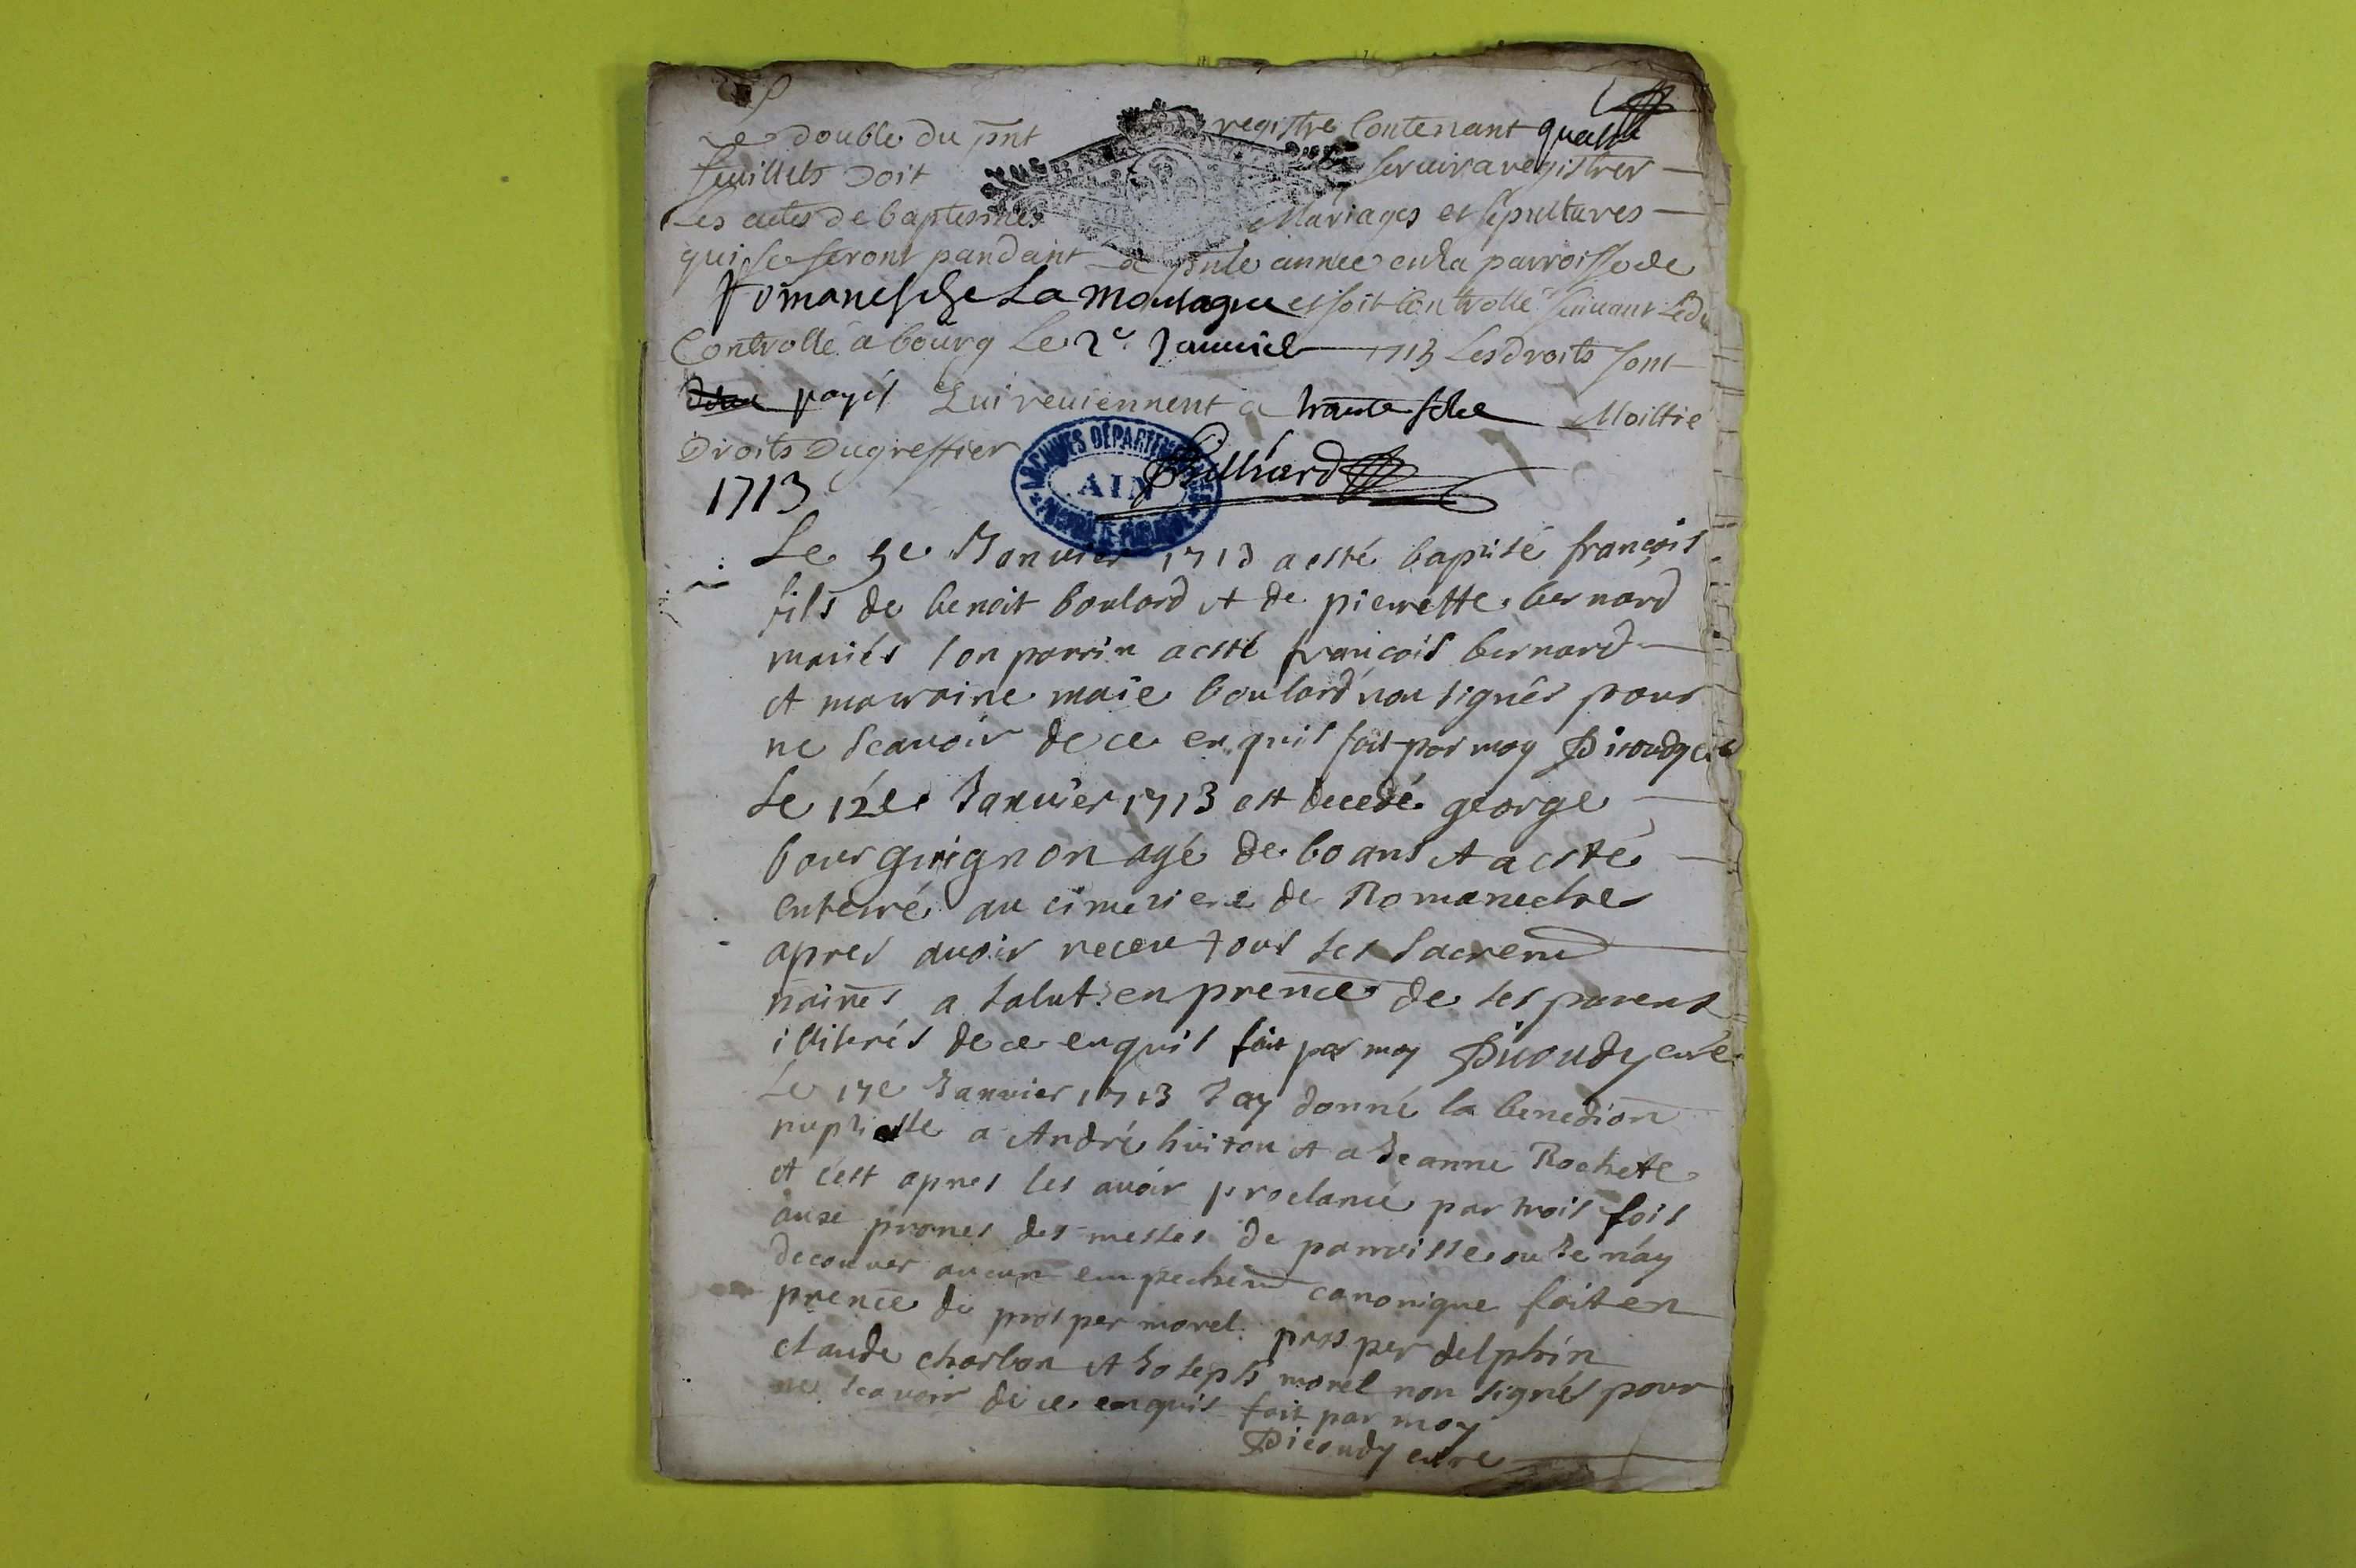 Le double du pnt registre Contenant quatre
feuillets Doit servir a registrer
Les actes de baptesmes Mariages et sepultures
qui se feront pandant la pnte année en la parroisse de
Romanesche La Montagne et soit Controllé suivant L'ed
Controllé a bourg Le 2e Janvier 1713 Les droits sont
payés Qui reviennent a trante Moittié
Droits Du greffier
Billiard
ARCHIVES DÉPARTEMENTALES
AIN
1713
Le 5e Janvier 1713 a esté baptisé françois
fils de benoit boulard et de pierrette bernard
mariés son parrin a esté françois bernard
et marraine marie boulard non signés pour
ne scavoir de ce enquis fait par moy Dicoudy curé
Le 12e Janvier 1713 est decedé george
bourguignon agé de 60 ans et a esté
enterré au cimetiere de Romaneche
apres avoir receu tous ses sacrem
naires a salut en prence de ses parens
illiterés de ce enquis fait par moy Dicoudy curé
Le 17e Janvier 1713 Jay donné la benedion
nuptialle a André huiton et a Jeanne Rochete
et cest apres les avoir proclamé par trois fois
aux prones des messes de parroisse ou Je n'ay
decouver aucun empechem canonique fait en
prence de prosper morel prosper delphin
claude charbon et Joseph morel non signés pour
ne scavoir de ce enquis fait par moy
Dicoudy curé